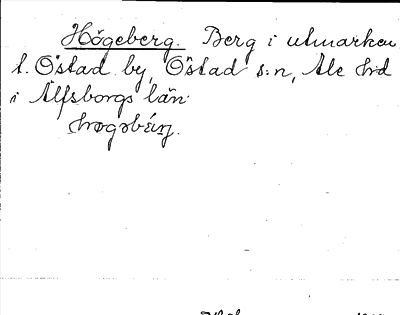 Högeberg. Berg i utmarken
t. Östad by, Östad s:n, Ale hrd
i Älfsborgs län.